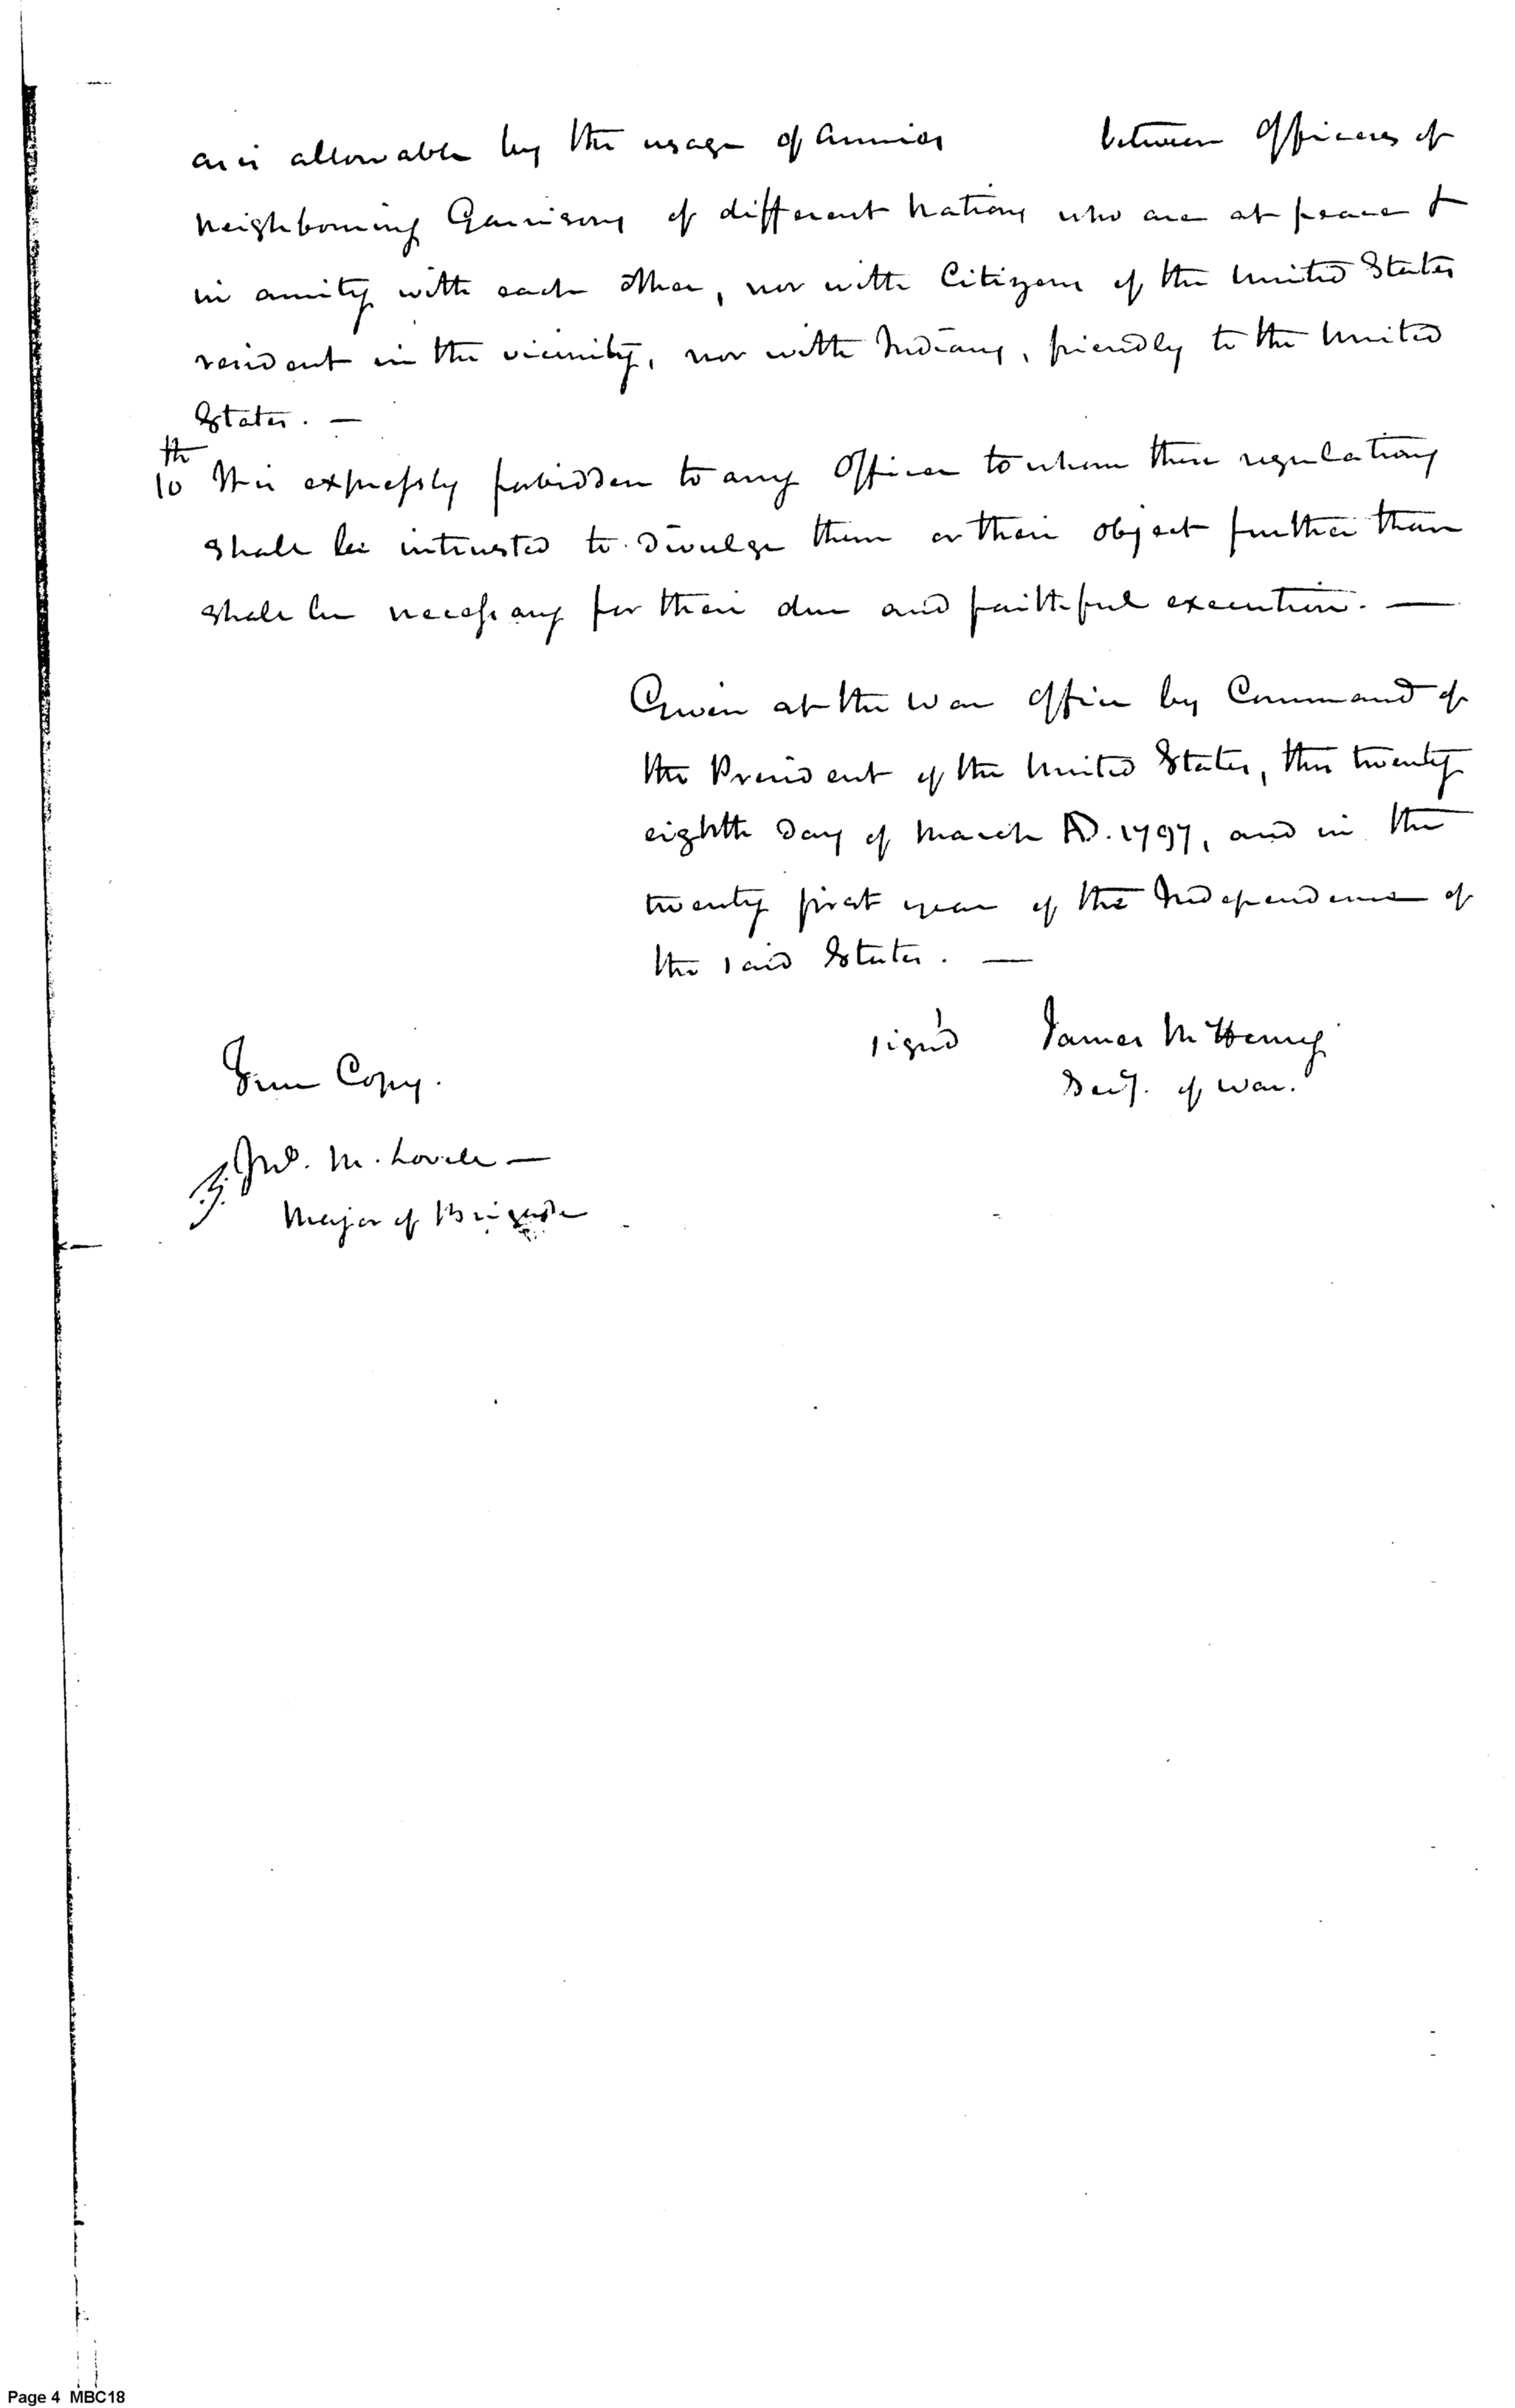 as is allowable by the usage of Armies between Officers of
neighbouring Garrisons of different Nations who are at peace &
in amity with each other, nor with Citizens of the United States
resident in the vicinity, nor with Indians, friendly to the United
States. —
10th It is expressly forbidden to any Officer to whom these regulations
shall be intrusted to divulge them or their object further than
shall be necessary for their due and faithful execution. —
Given at the War Office by Command of
the President of the United States, this twenty
eighth Day of March AD. 1797, and in the
twenty first year of the Independence of
the said States. —
sign'd James McHenry
Secy. of War.
True Copy.
Jno. M. Lovell —
Major of Brigade
Page 4 MBC18